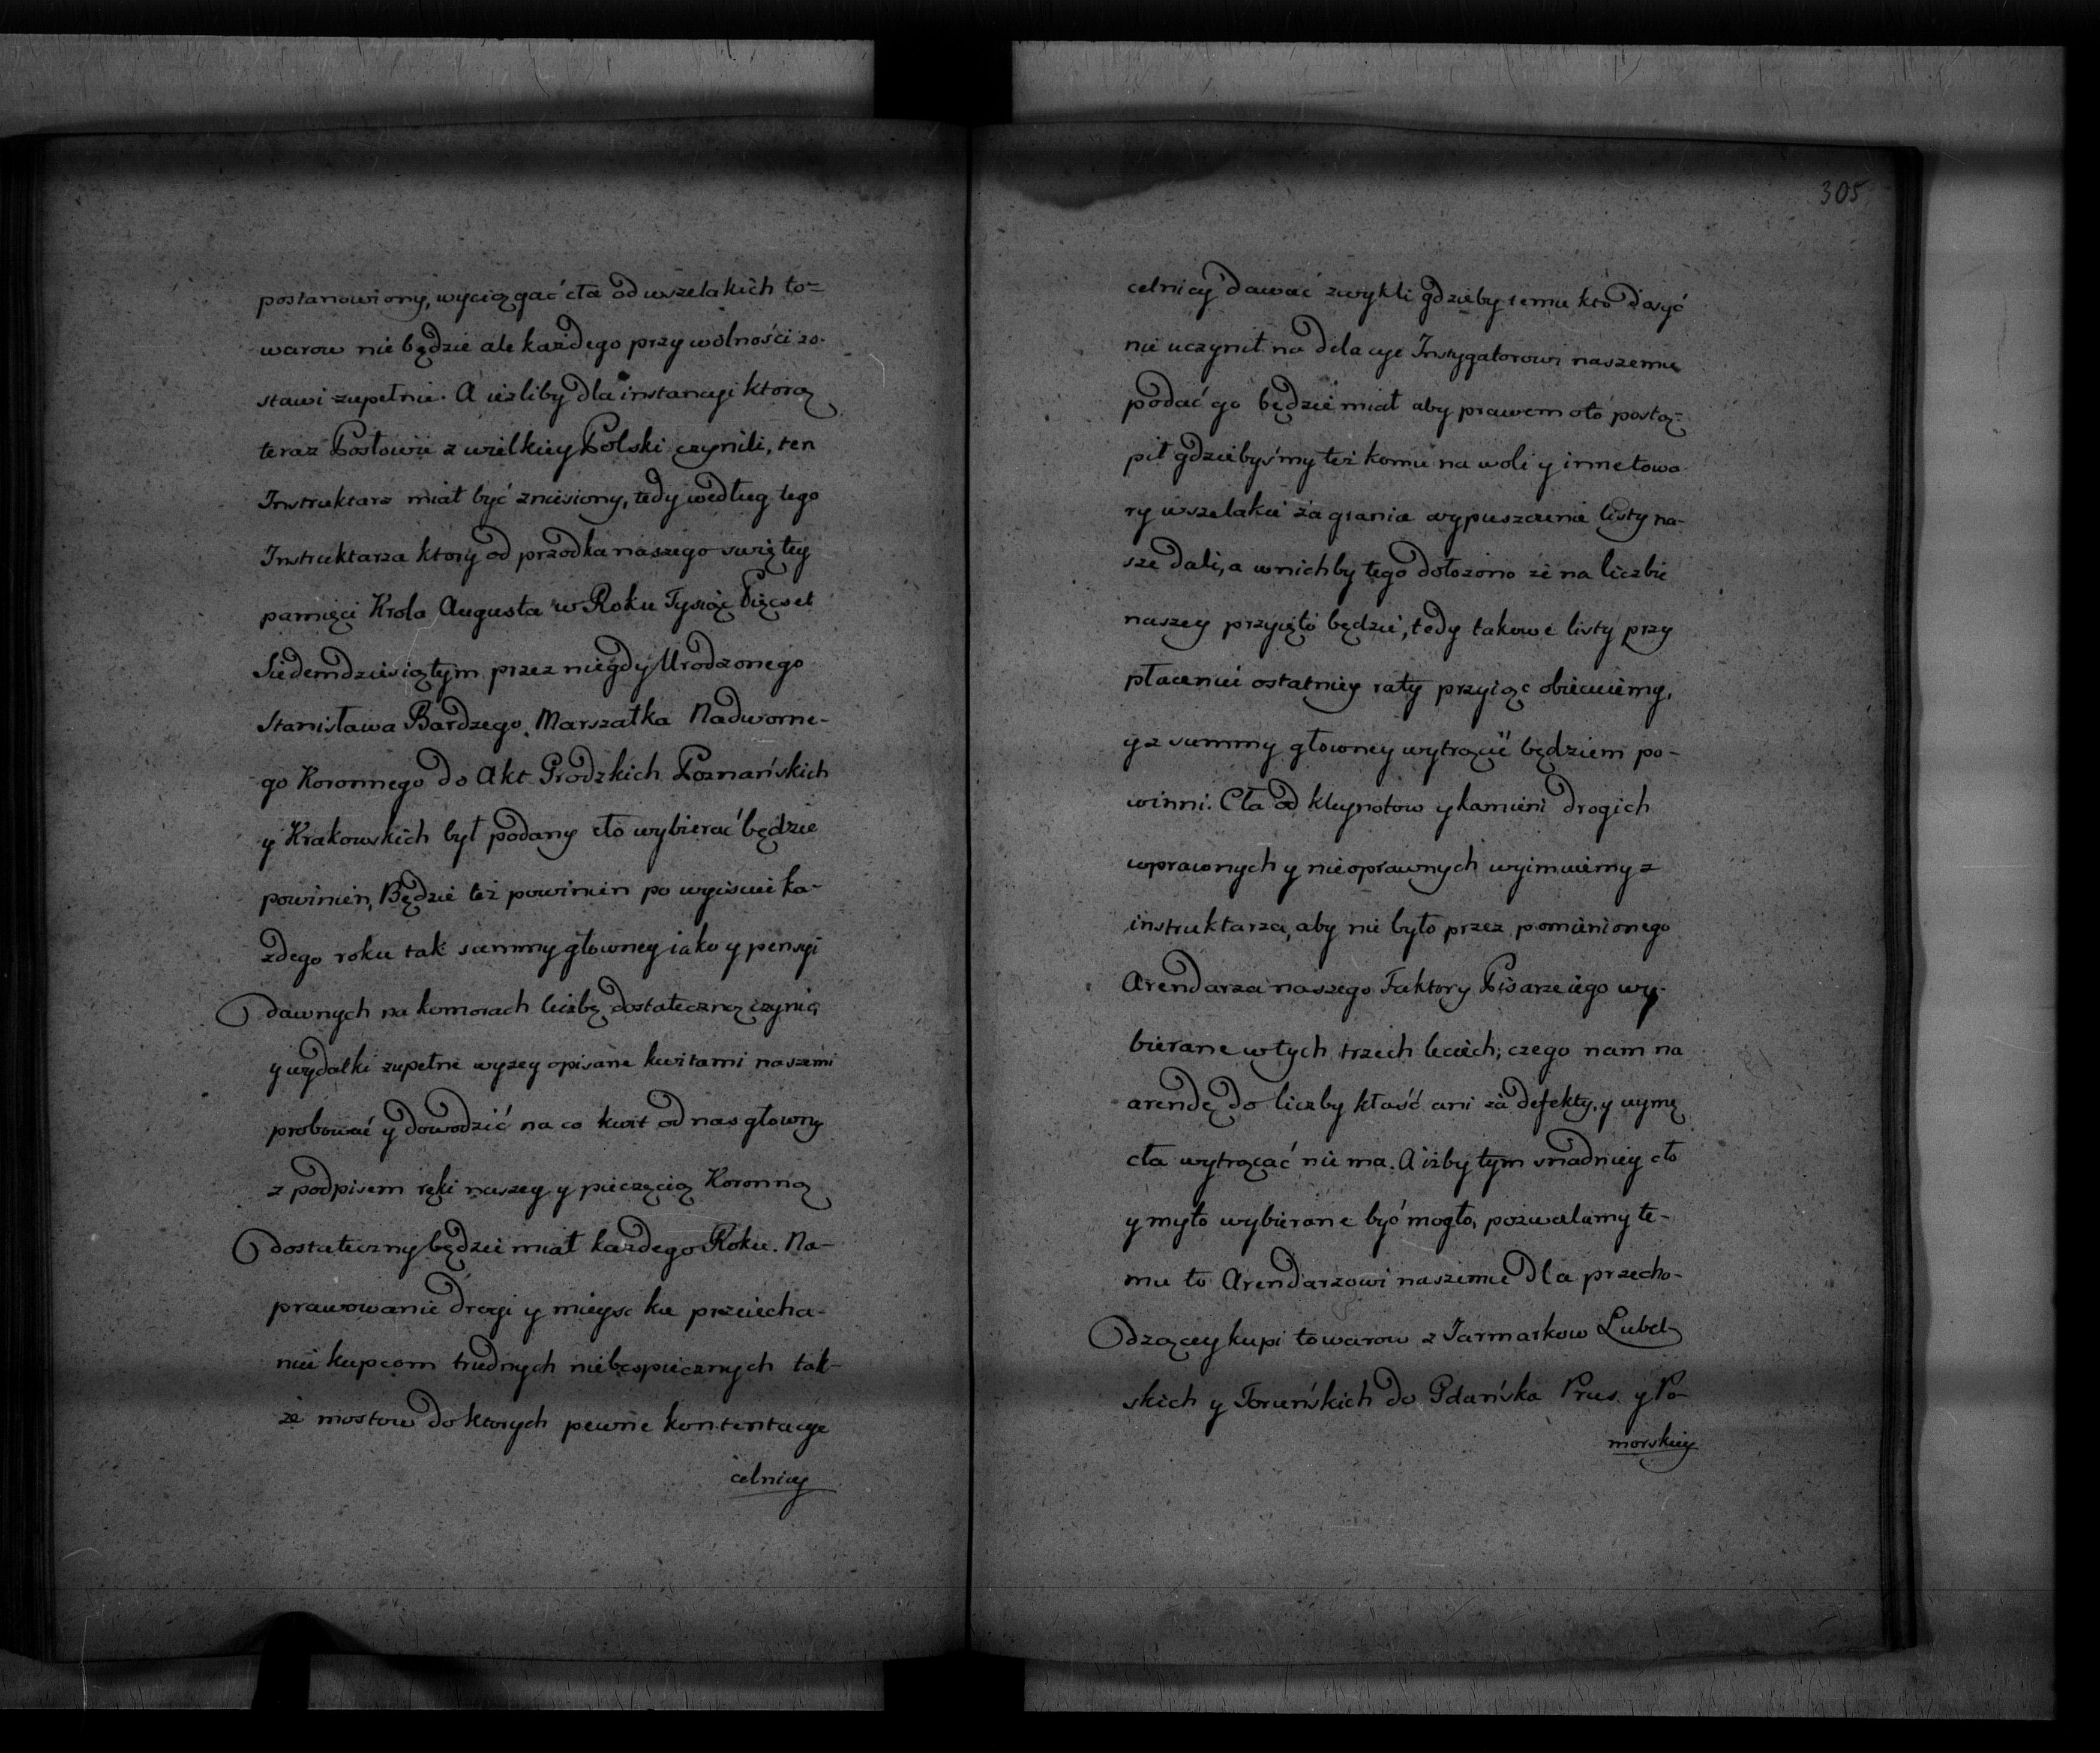 postanowiony, wyciągać cła od wszelakich to=
warow nie będzie ale każdego przy wolności zo-
stawi zupełnie. A ieżliby dla instancyi ktorą
teraz Posłowie z wielkiey Polski czynili, ten
Instruktarz miał być zniesiony, tedy według tego
Instruktarza ktory od przodka naszego swiętey
pamięci Krola Augusta w Roku Tysiąc Pięćset
Siedemdziesiątym przez niegdy Urodzonego
Stanisława Bardzego, Marszałka Nadworne-
go Koronnego do Akt Grodzkich Poznańskich
y Krakowskich był podany cło wybierać będzie
powinien, Będzie też powinien po wyisciu ka-
zdego roku tak summy głowney iako y pensyi
dawnych na komorach liczbę dostateczną czynić
y wydatki zupełne wyzey opisane kwitami naszemi
probować y dowodzić na co kwit od nas głowny
z podpisem ręki naszey y pieczęcią Koronną
dostateczny będzie miał każdego Roku. Na-
prawowanie drogi y mieysc ku przeiecha-
niu kupcom trudnych niebespiecznych tak-
że mostow do ktorych pewne kontentacye
celnicy
305
celnicy dawać zwykli gdzieby temu kto dosyć
nie uczynił na delacye Instygatorowi naszemu
podać go będzie miał aby prawem oto postą-
pił gdziebyśmy też komu na woli y inne towa-
ry wszelakie za granice wypuszczenie listy na-
sze dali, a w nichby tego dołozono że na liczbie
naszey przyięto będzie, tedy takowe listy przy
płaceniu ostatniey raty przyiąc obiecuiemy,
y z summy głowney wytrącić będziem po-
winni. Cła od kleynotow y kamieni drogich
wprawnych y nieoprawnych wyimuiemy z
instruktarza, aby nie było przez pomienionego
Arendarza naszego Faktory Pisarze iego wy-
bierane w tych trzech leciech; czego nam na
arendę do liczby kłaść ani za defekty, y uymę
cła wytrącać nie ma. A iżby tym snadniey cło
y myto wybierane być mogło, pozwalamy te-
mu to Arendarzowi naszemu dla przecho-
dzącey kupi towarow z Jarmarkow Lubel-
skich y Toruńskich do Gdańska Prus. y Po-
morskiey